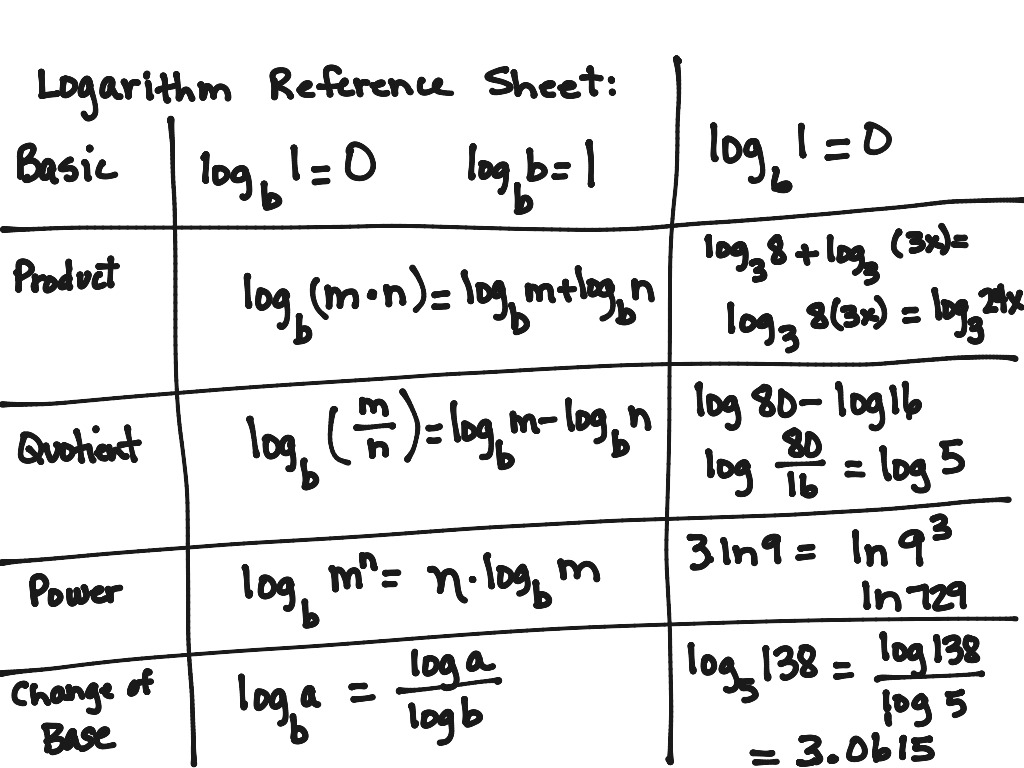 Logarithm Reference Sheet:
Basic log_b 1 = 0 log_b b = 1 log_6 1 = 0
Product log_b (m · n) = log_b m + log_b n log_3 8 + log_3 (3x) =
log_3 8(3x) = log_3 24x
Quotient log_b (m/n) = log_b m − log_b n log 80 − log 16
log 80/16 = log 5
Power log_b mⁿ = n · log_b m 3 ln 9 = ln 9³
ln 729
Change of Base log_b a = log a / log b log_5 138 = log 138 / log 5
= 3.0615